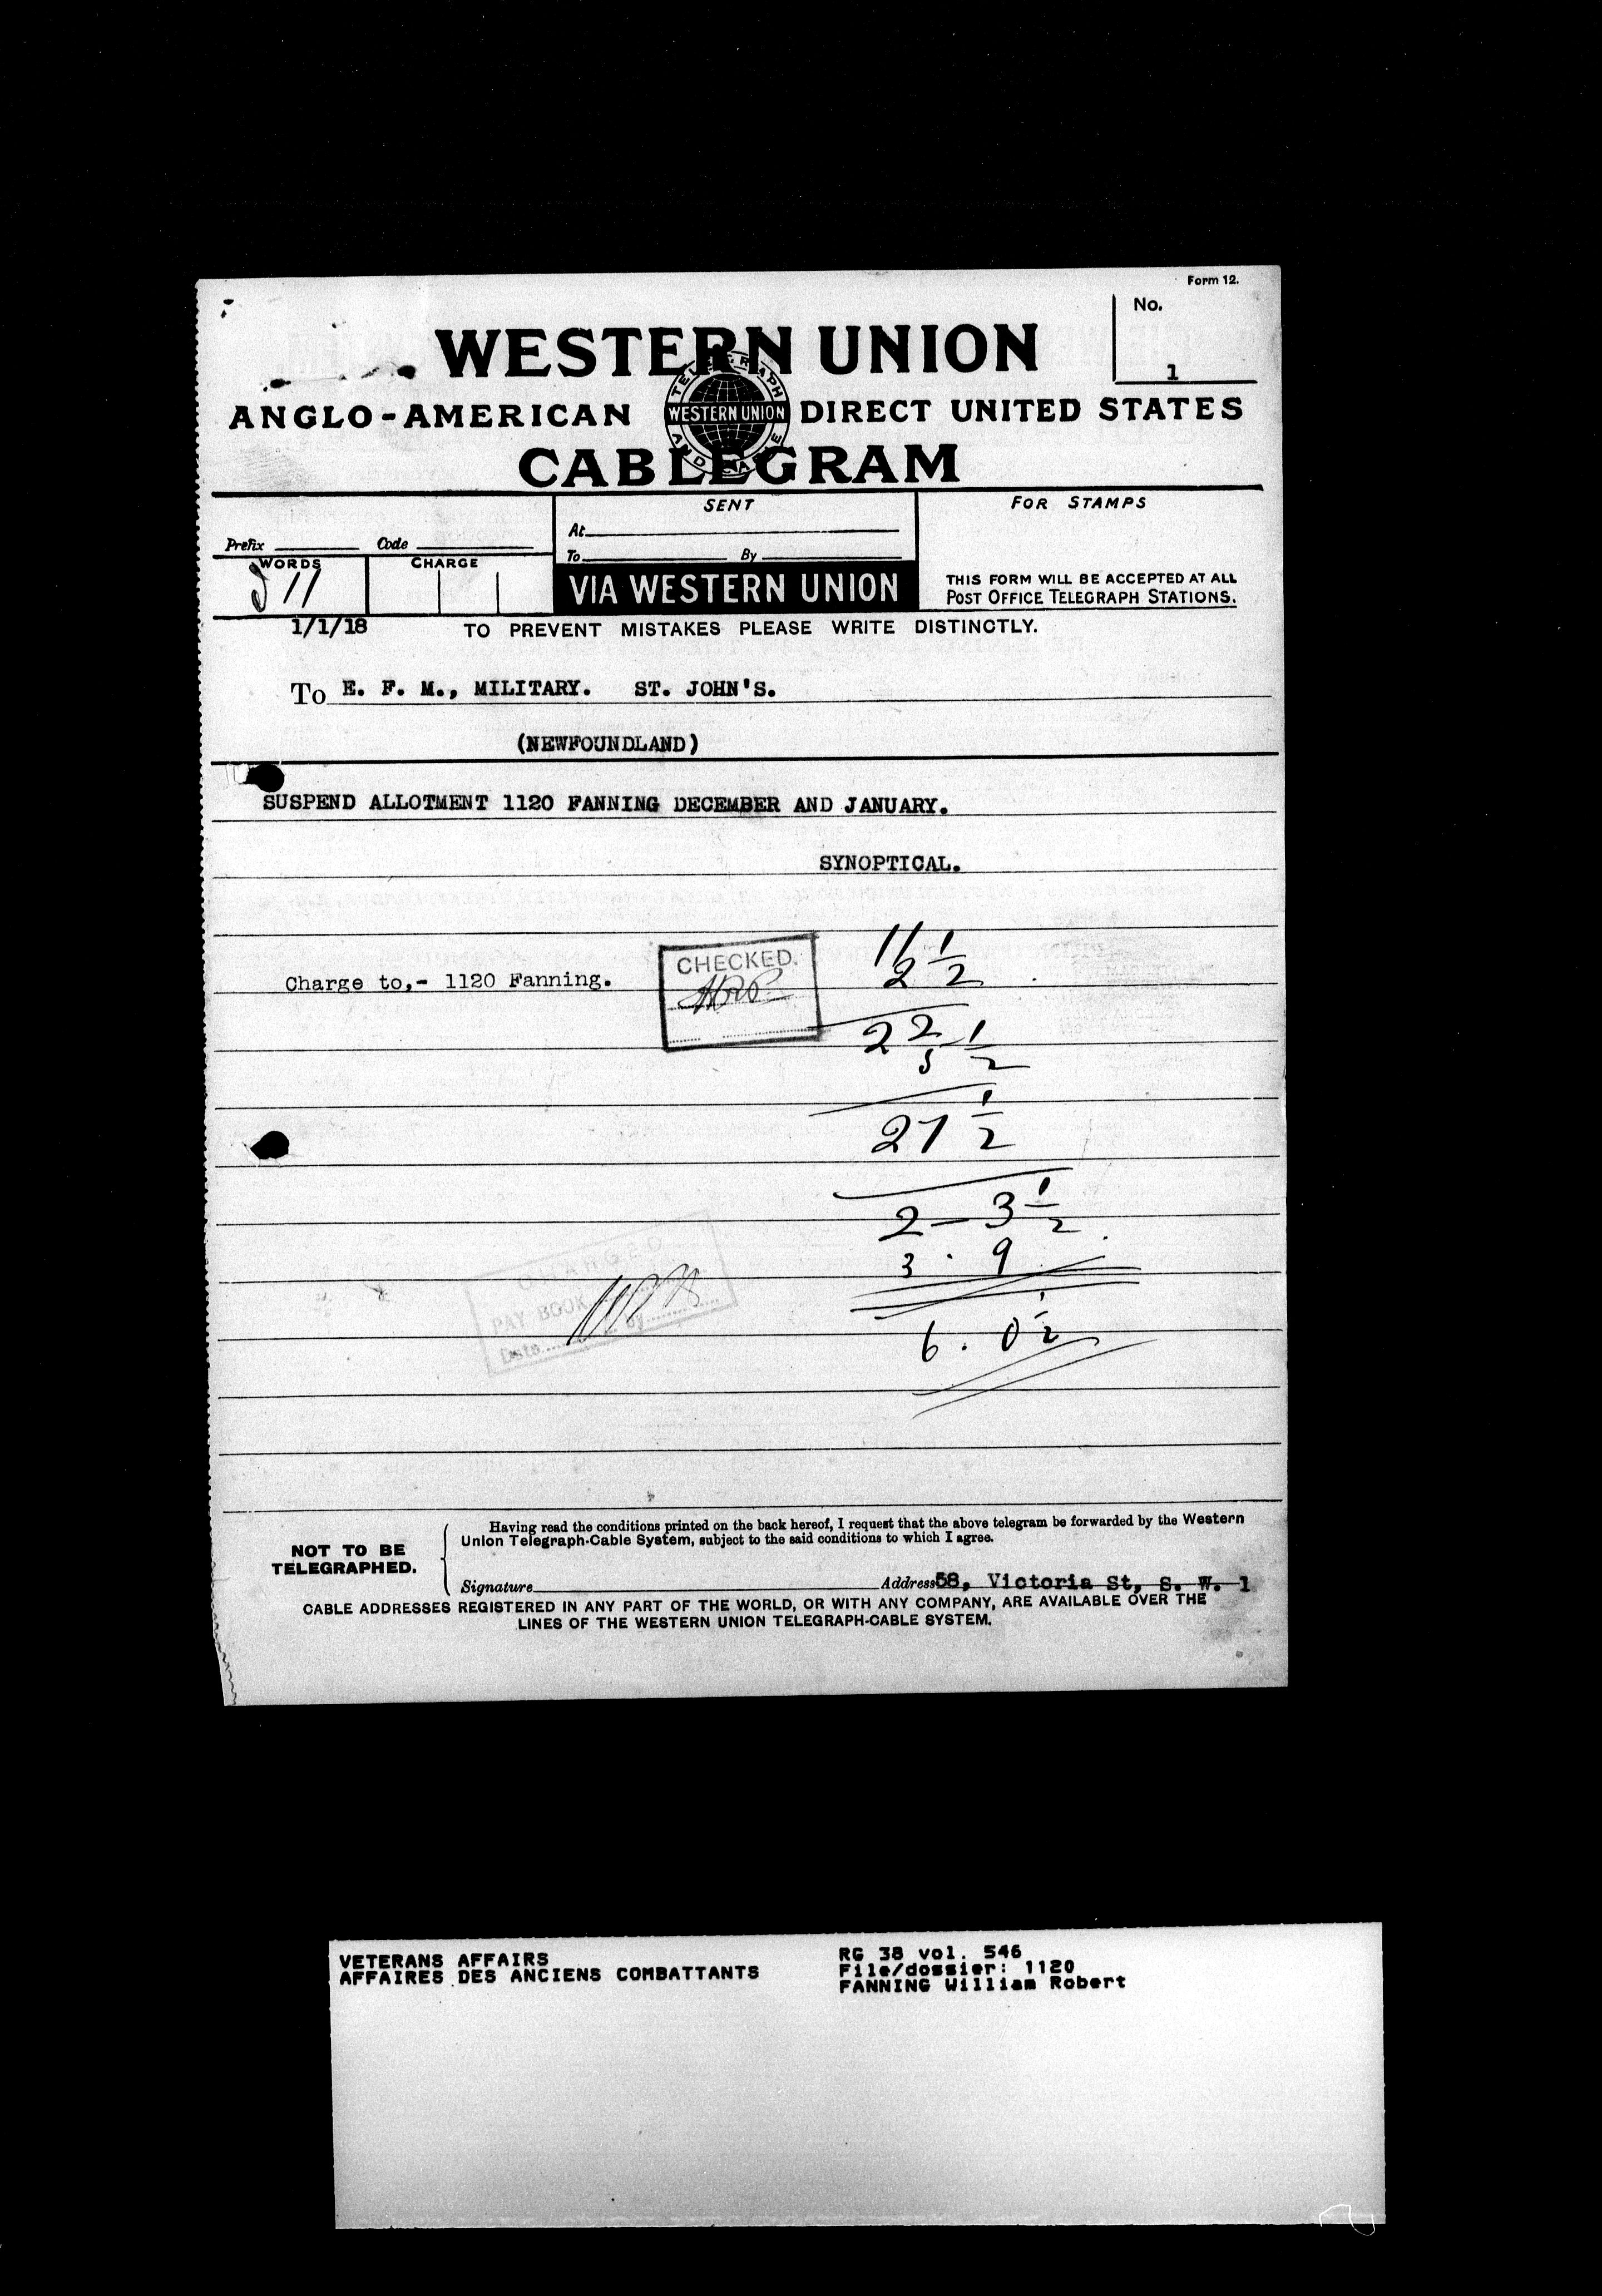 Form 12.
No.
1
WESTERN UNION
TELEGRAPH AND CABLE
WESTERN UNION
ANGLO-AMERICAN DIRECT UNITED STATES
CABLEGRAM
Prefix Code
WORDS CHARGE
11
SENT
At
To By
VIA WESTERN UNION
FOR STAMPS
THIS FORM WILL BE ACCEPTED AT ALL
POST OFFICE TELEGRAPH STATIONS.
1/1/18 TO PREVENT MISTAKES PLEASE WRITE DISTINCTLY.
To E. F. M., MILITARY. ST. JOHN'S.
(NEWFOUNDLAND)
SUSPEND ALLOTMENT 1120 FANNING DECEMBER AND JANUARY.
SYNOPTICAL.
Charge to,- 1120 Fanning.
CHECKED.
11
2 1/2
22
5 1/2
27 1/2
2 - 3 1/2
3 . 9
6 . 0 1/2
CHARGED
PAY BOOK
Date by
NOT TO BE
TELEGRAPHED.
Having read the conditions printed on the back hereof, I request that the above telegram be forwarded by the Western
Union Telegraph-Cable System, subject to the said conditions to which I agree.
Signature Address 58, Victoria St, S. W. 1
CABLE ADDRESSES REGISTERED IN ANY PART OF THE WORLD, OR WITH ANY COMPANY, ARE AVAILABLE OVER THE
LINES OF THE WESTERN UNION TELEGRAPH-CABLE SYSTEM.
VETERANS AFFAIRS
AFFAIRES DES ANCIENS COMBATTANTS
RG 38 vol. 546
File/dossier: 1120
FANNING William Robert